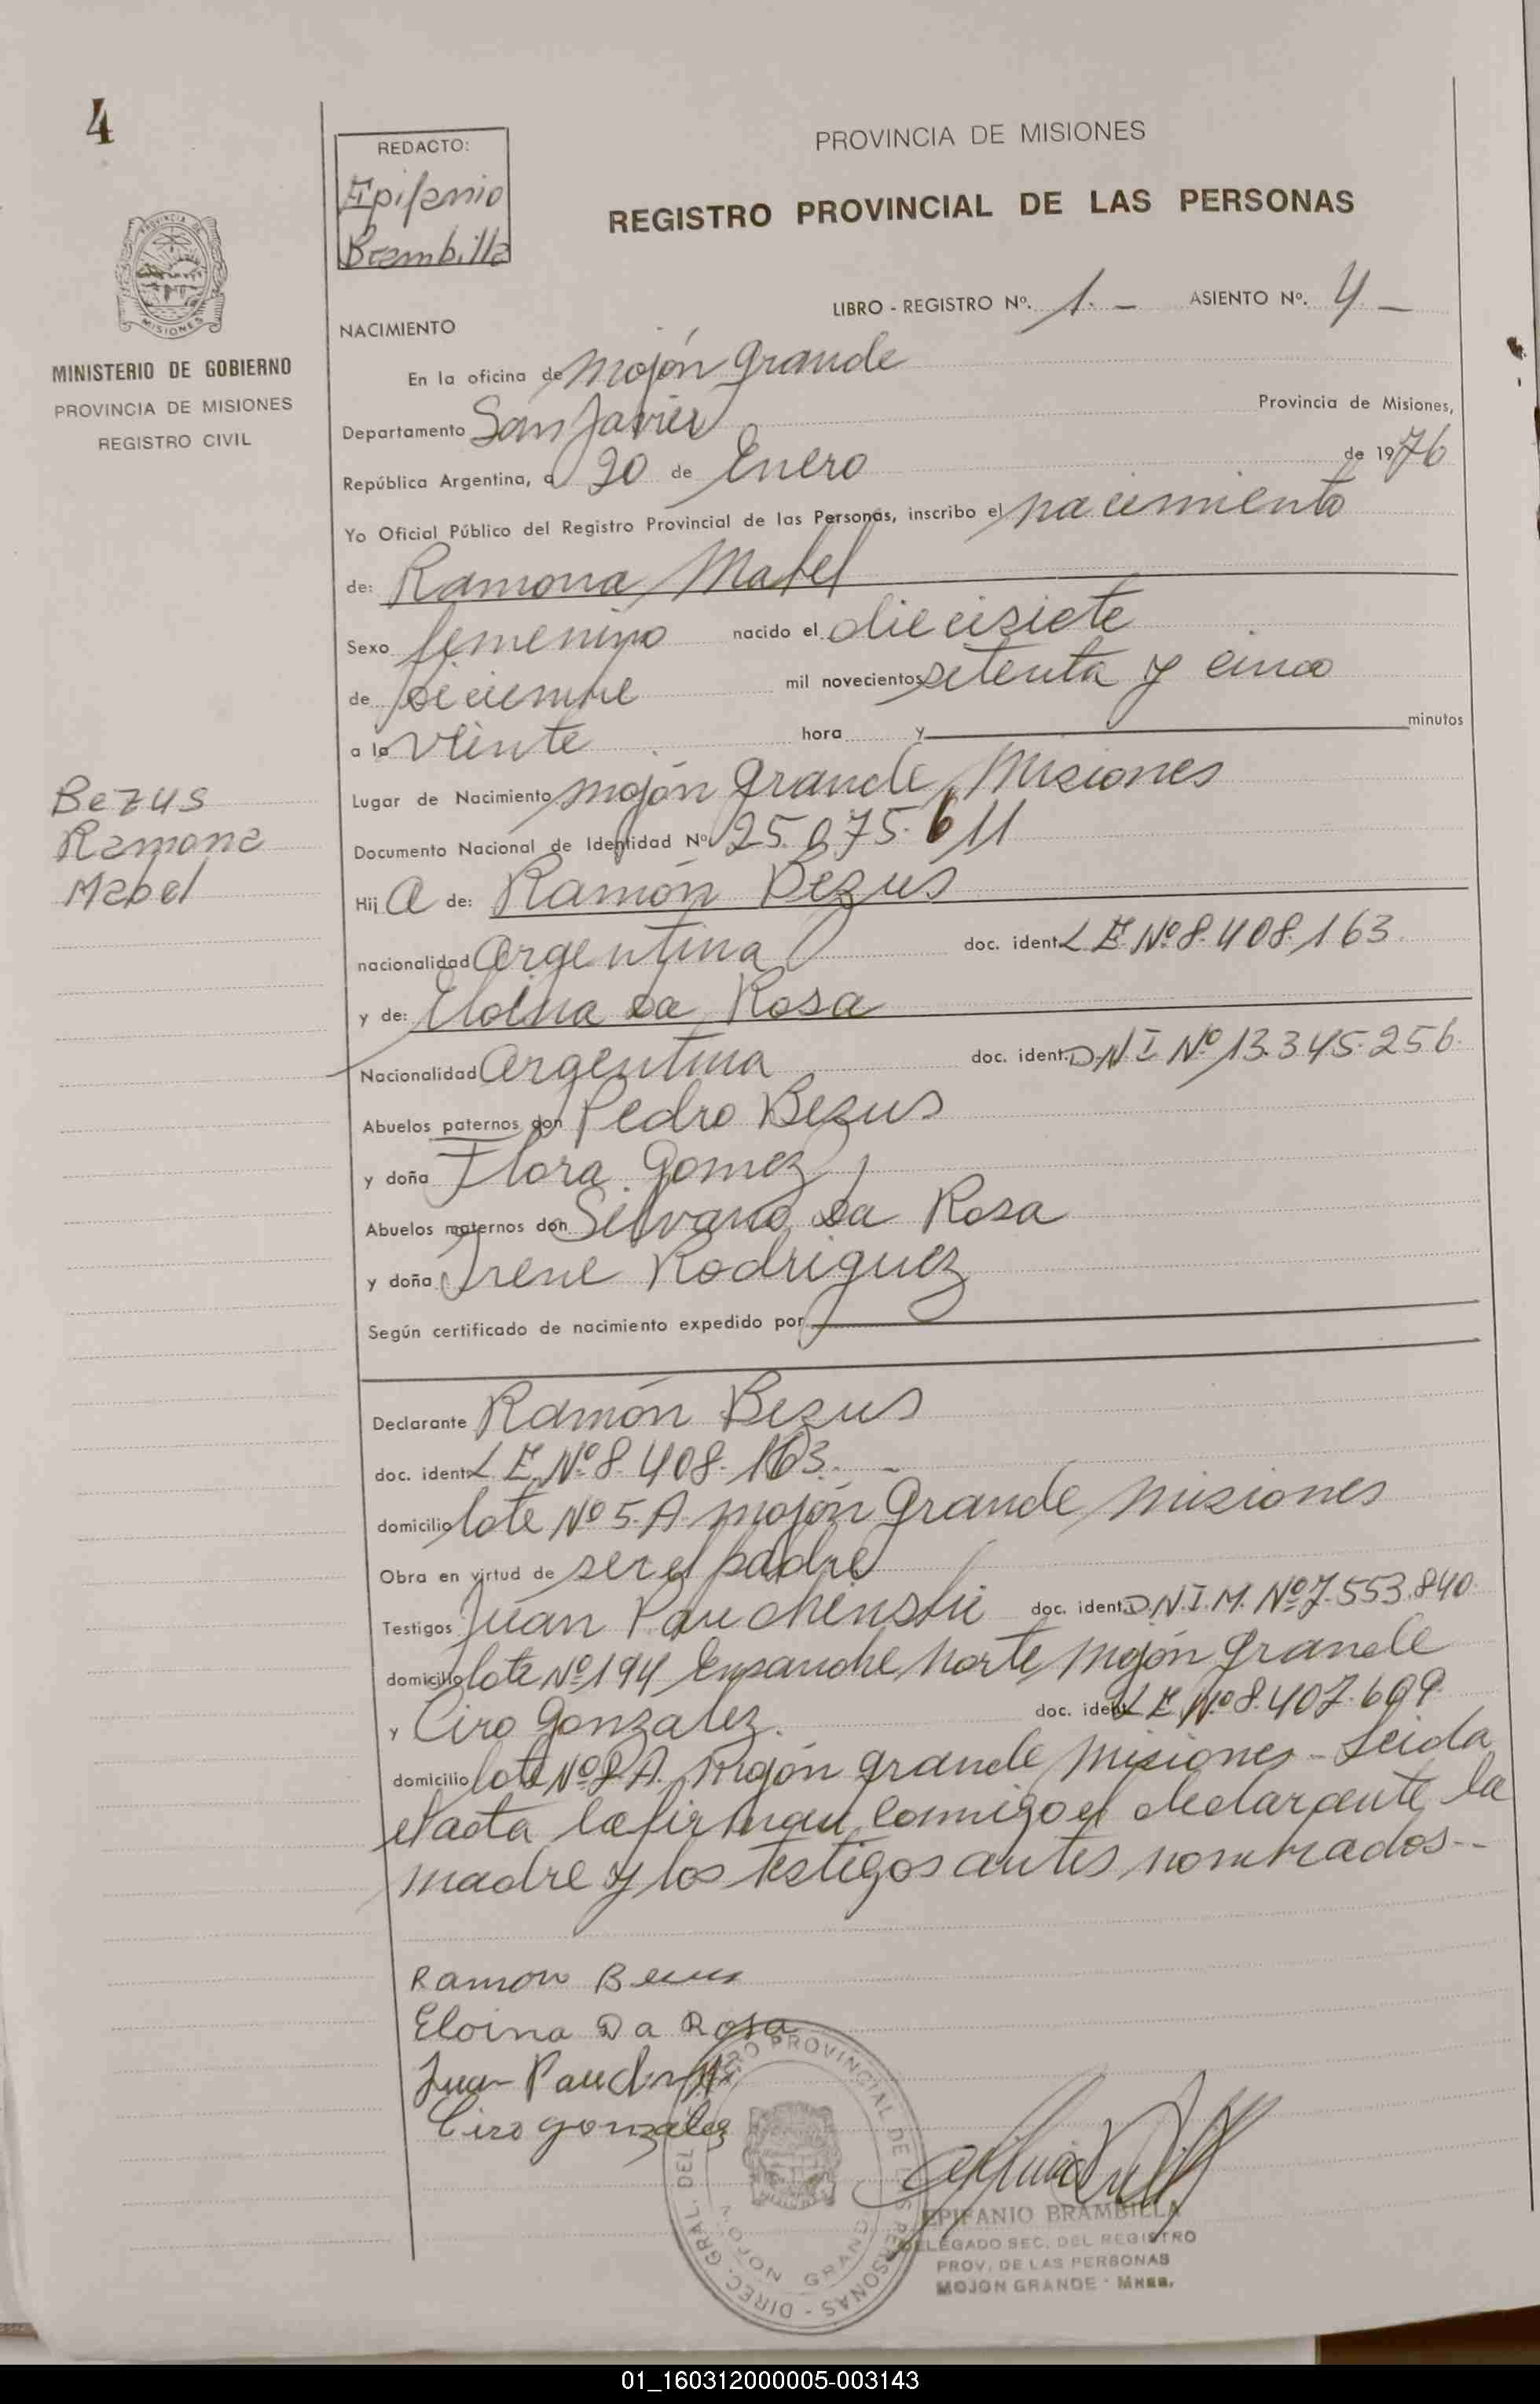 4
REDACTO:
Epifanio
Brambilla
PROVINCIA DE MISIONES
REGISTRO PROVINCIAL DE LAS PERSONAS
LIBRO - REGISTRO Nº. 1. - ASIENTO Nº. 4 -
PROVINCIA
MISIONES
MINISTERIO DE GOBIERNO
PROVINCIA DE MISIONES
REGISTRO CIVIL
NACIMIENTO
En la oficina de Mojón Grande
Departamento San Javier Provincia de Misiones,
República Argentina, a 20 de Enero de 1976
Yo Oficial Público del Registro Provincial de las Personas, inscribo el nacimiento
de: Ramona Mabel
Sexo femenino nacido el diecisiete
de Diciembre mil novecientos setenta y cinco
a la veinte hora y minutos
Bezus
Ramona
Mabel
Lugar de Nacimiento Mojón Grande, Misiones
Documento Nacional de Identidad Nº 25.075.611
Hij a de: Ramón Bezus
nacionalidad Argentina doc. ident. L E. Nº 8.408.163.
y de: Eloina Da Rosa
Nacionalidad Argentina doc. ident. D.N.I Nº 13.345.256.
Abuelos paternos don Pedro Bezus
y doña Flora Gomez
Abuelos maternos don Silvano Da Rosa
y doña Irene Rodriguez
Según certificado de nacimiento expedido por
Declarante Ramón Bezus
doc. ident. L E. Nº 8.408.163.-
domicilio lote Nº 5.A. Mojón Grande, Misiones
Obra en virtud de ser el padre
Testigos Juan doc. ident. D.N.I.M. Nº 7.553.840.
domicilio lote Nº 194 Ensanche Norte, Mojón Grande
y Ciro Gonzalez. doc. ident. L E. Nº 8.407.609.
domicilio lote Nº A. Mojón Grande, Misiones - Leida
el acta la firman conmigo el declarante, la
madre y los testigos antes nombrados--
Ramon Bezus
Eloina Da Rosa
Juan
Ciro gonzalez
DIREC. GRAL. DEL REGISTRO PROVINCIAL DE LAS PERSONAS -
MOJON GRANDE
EPIFANIO BRAMBILLA
DELEGADO SEC. DEL REGISTRO
PROV. DE LAS PERSONAS
MOJON GRANDE - MNES.
01_160312000005-003143